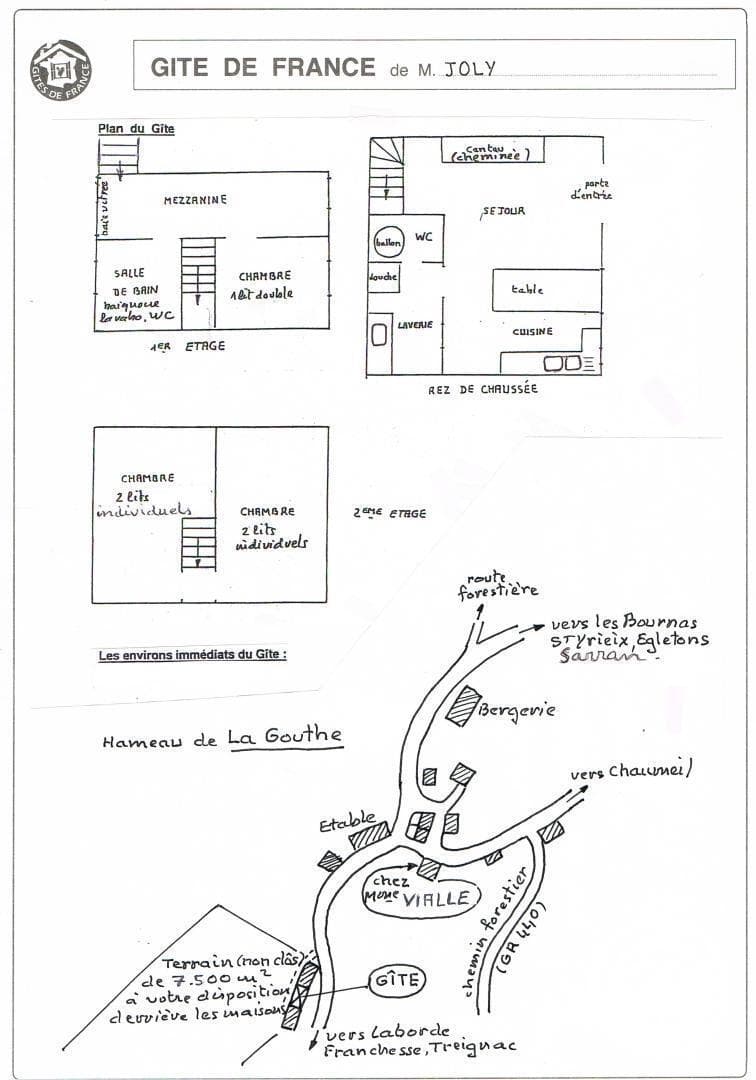 GITES DE FRANCE
GITE DE FRANCE de M. JOLY
Plan du Gîte
baie vitrée
MEZZANINE
SALLE
DE BAIN
baignoire
lavabo, WC
CHAMBRE
1 lit double
1ER ETAGE
Cantou
(cheminée)
porte
d'entrée
SEJOUR
ballon
WC
douche
table
LAVERIE
CUISINE
REZ DE CHAUSSÉE
CHAMBRE
2 lits
individuels
CHAMBRE
2 lits
individuels
2EME ETAGE
Les environs immédiats du Gîte :
route
forestière
vers les Bournas
STYrieix, Egletons
Sarran.
Bergerie
Hameau de La Gouthe
vers Chaumeil
Etable
chez
Mme VIALLE
chemin forestier
(GR 440)
Terrain (non clôs)
de 7.500 m2
à votre disposition
derrière les maisons
GÎTE
vers Laborde
Franchesse, Treignac